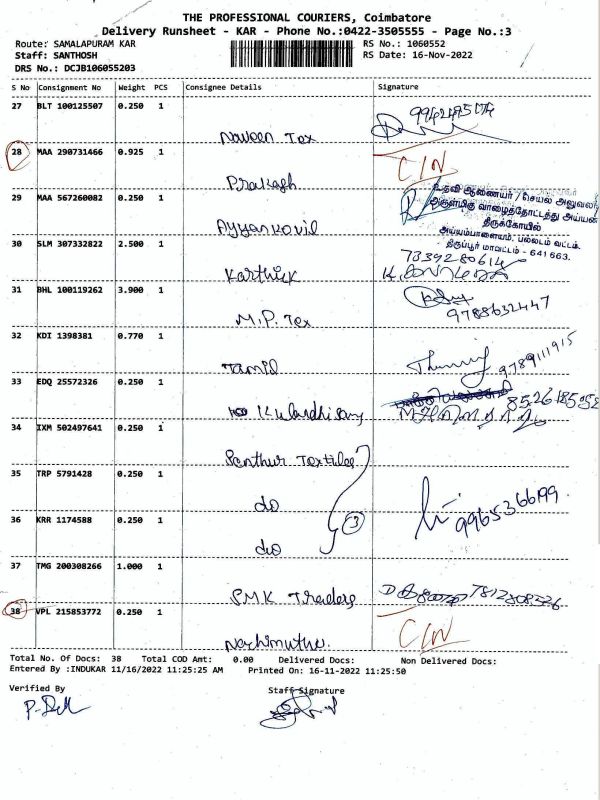 THE PROFESSIONAL COURIERS, Coimbatore
Delivery Runsheet - KAR - Phone No.:0422-3505555 - Page No.:3
Route: SAMALAPURAM KAR RS No.: 1060552
Staff: SANTHOSH RS Date: 16-Nov-2022
DRS No.: DCJB106055203
S No Consignment No Weight PCS Consignee Details Signature
27 BLT 100125507 0.250 1
Naveen Tex
28 MAA 290731466 0.925 1 C/N
Prakash
29 MAA 567260082 0.250 1
Ayyankovil
உதவி ஆணையர் / செயல் அலுவலர்
அருள்மிகு வாழைத்தோட்டத்து அய்யன்
திருக்கோயில்
அய்யம்பாளையம், பல்லடம் வட்டம்.
திருப்பூர் மாவட்டம் - 641 663.
30 SLM 307332822 2.500 1 7339280614
Karthick
31 BHL 100119262 3.900 1
9788632447
M.P. Tex
32 KDI 1398381 0.770 1 9789111915
Tamil
33 EDQ 25572326 0.250 1
Kulandhisamy
34 IXM 502497641 0.250 1
Senthur Textiles
35 TRP 5791428 0.250 1
do
9965366699
36 KRR 1174588 0.250 1 3
do
37 TMG 200308266 1.000 1
SMK Traders 7812808526
38 VPL 215853772 0.250 1 C/N
Nachimuthu
Total No. Of Docs: 38 Total COD Amt: 0.00 Delivered Docs: Non Delivered Docs:
Entered By :INDUKAR 11/16/2022 11:25:25 AM Printed On: 16-11-2022 11:25:50
Verified By Staff Signature